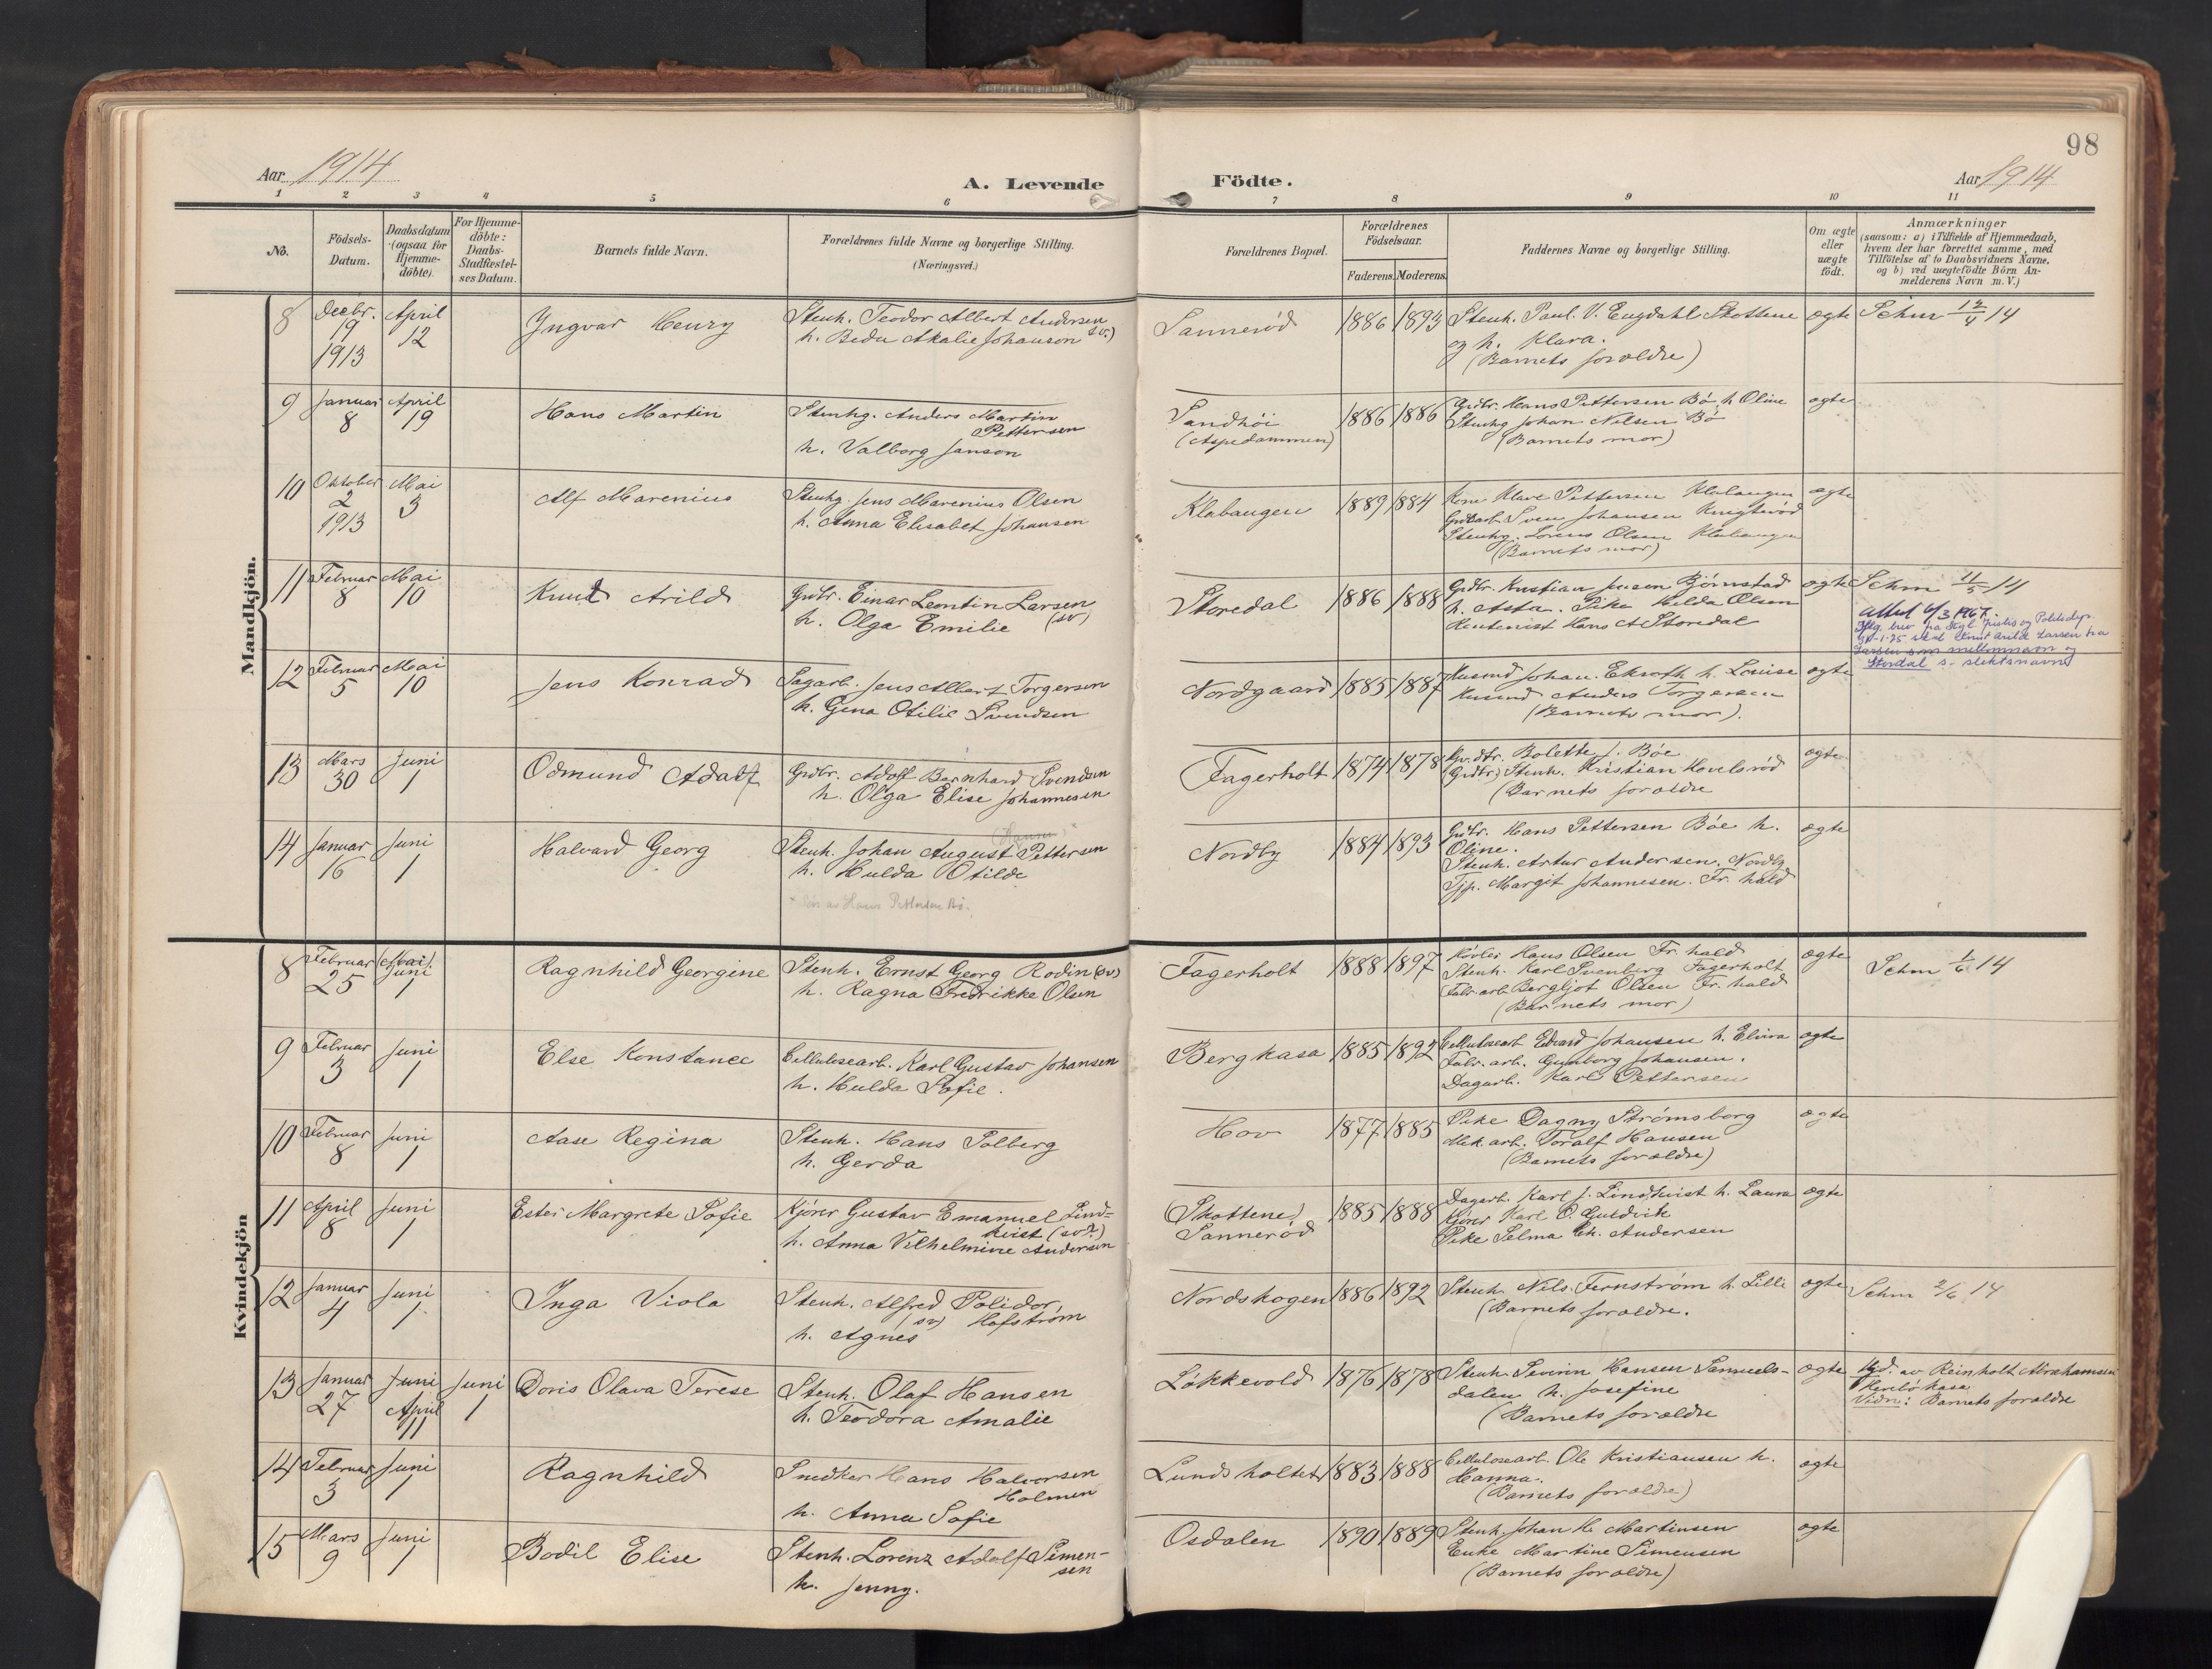 98
Aar 1914
A. Levende Födte.
Aar 1914
1 2 3 4 5 6 7 8 9 10 11
No.
Födsels-
Datum.
Daabsdatum
(ogsaa for
Hjemme-
döbte).
For Hjemme-
döbte:
Daabs-
Stadfæstel-
ses Datum.
Barnets fulde Navn.
Forældrenes fulde Navne og borgerlige Stilling.
(Næringsvei.)
Forældrenes Bopæl.
Forældrenes
Födselsaar.
Faderens. Moderens.
Faddernes Navne og borgerlige Stilling.
Om ægte
eller
uægte
födt.
Anmærkninger
(saasom: a) i Tilfælde af Hjemmedaab,
hvem der har forrettet samme, med
Tilföielse af to Daabsvidners Navne,
og b) ved uægtefödte Börn An-
melderens Navn m. V.)
Mandkjön.
8 Decbr. 19 1913 April 12 Ingvar Henry
Stenh. Teodor Albert Andersen
h. Beda Akalie Johanson (sv.)
Sannerød 1886 1893
Stenh. Paul. V. Engdahl Skottene
og h. Klara.
(Barnets forældre)
ægte Schm 12/4 14
9 Januar 8 April 19 Hans Martin
Stenhg. Anders Martin
Pettersen
h. Valborg Janson
Sandhöi
(Aspedammen)
1886 1886
Grdbr. Hans Pettersen Bö h. Oline
Stenhg Johan Nilsen Bö
(Barnets mor)
ægte
10 Oktober 2 1913 Mai 3 Alf Marenius
Stenhg. Jens Marenius Olsen
h. Anna Elisabet Johansen
Klabaugen 1889 1884
Kone Klare Pettersen Klabaugen
Grdarb. Sven Johansen
Stenhg. Lorens Olsen Klabaugen
(Barnets mor)
ægte
11 Februar 8 Mai 10 Knut Arild
Grdbr. Einar Leontin Larsen
h. Olga Emilie (sv)
Storedal 1886 1888
Grdbr. Kristian Jensen Bjørnstad
h. Asta. Pike Hilda Olsen
Rentenist Hans A Storedal
ægte Schm 11/5 14
Attest 6/3 1967.
Iflg. brev fra Kgl. Justis og Politidep.
1-75 skal Knut Arild Larsen ha
Larsen som mellomnavn og
Stordal s. slektsnavn
12 Februar 5 Mai 10 Jens Konrad
Sagarb. Jens Albert Torgersen
h. Gina Otilie Svendsen
Nordgaard 1885 1887
Husmd Johan Ekroth h. Louise
Husmd Anders Torgersen
(Barnets mor).
ægte
13 Mars 30 Juni 1 Odmund Adolf
Grdbr. Adolf Bernhard Svendsen
h. Olga Elise Johannesen
Fagerholt 1874 1878
Grdbr. Bolette J. Bøe
(Grdbr) Stenh. Kristian Hovelsrød
(Barnets forældre
ægte
14 Januar 16 Juni 1 Halvard Georg
(Hansen)
Stenh. Johan August Pettersen
h. Hulda Otilde
* Søn av Hans Pettersen Bö.
Nordby 1884 1893
Grdbr. Hans Pettersen Bøe h.
Oline.
Stenh. Artur Andersen. Nordby
Tjp. Margit Johannesen. Fr. hald
ægte
Kvindekjön
8 Februar 25 (Mai) Juni 1 Ragnhild Georgine
Stenh. Ernst Georg Rodin (sv)
h. Ragna Fredrikke Olsen
Fagerholt 1888 1897
Høvler Hans Olsen Fr. hald
Stenh. Karl Svenberg Fagerholt
Fabr. arb. Bergljot Olsen Fr. hald
(Barnets mor)
ægte Schm 1/6 14
9 Februar 3 Juni 1 Else Konstance
Cellulosearb. Karl Gustav Johansen
h. Hulda Sofie.
Bergkasa 1885 1892
Cellulosearb Edvard Johansen h. Elvira
Fabr. arb. Gunborg Johansen.
Dagarb. Karl Pettersen
ægte
10 Februar 8 Juni 1 Aase Regina
Stenh. Hans Solberg
h. Gerda
Hov 1877 1885
Pike Dagny Strømsborg
Mek. arb. Toralf Hansen
(Barnets forældre)
ægte
11 April 8 Juni 1 Ester Margrete Sofie
Kjører Gustav Emanuel Lind-
kvist (sv?)
h. Anna Vilhelmine Andersen
(Skottene)
Sannerød
1885 1888
Dagarb. Karl J. Lindkvist h. Laura
Kjører Karl O. Guldvik
Pike Selma Ch. Andersen
ægte
12 Januar 4 Juni 1 Inga Viola
Stenh. Alfred Polidor,
(sv) Hofstrøm
h. Agnes
Nordskogen 1886 1892
Stenh. Nils Fernstrøm h. Lilli
(Barnets forældre.
ægte Schm 2/6 14
13 Januar 27 Juni April 11 Juni 1 Doris Olava Terese
Stenh. Olaf Hansen
h. Teodora Amalie
Løkkevold 1876 1878
Stenh. Severin Hansen Samuels-
dalen h. Josefine
(Barnets forældre
ægte
Hjd. av Reinholt Abrahamsen
Vidn: Barnets forældre
14 Februar 3 Juni 1 Ragnhild
Snedker Hans Halvorsen
Holmen
h. Anna Sofie
Lundsholtet 1883 1888
Cellulosearb. Ole Kristiansen h.
Hanna.
(Barnets forældre)
ægte
15 Mars 9 Juni 1 Bodil Elise
Stenh. Lorenz Adolf Simen-
sen
h. Jenny.
Osdalen 1890 1889
Stenh. Johan H. Martinsen
Enke Martine Simensen
(Barnets forældre)
ægte